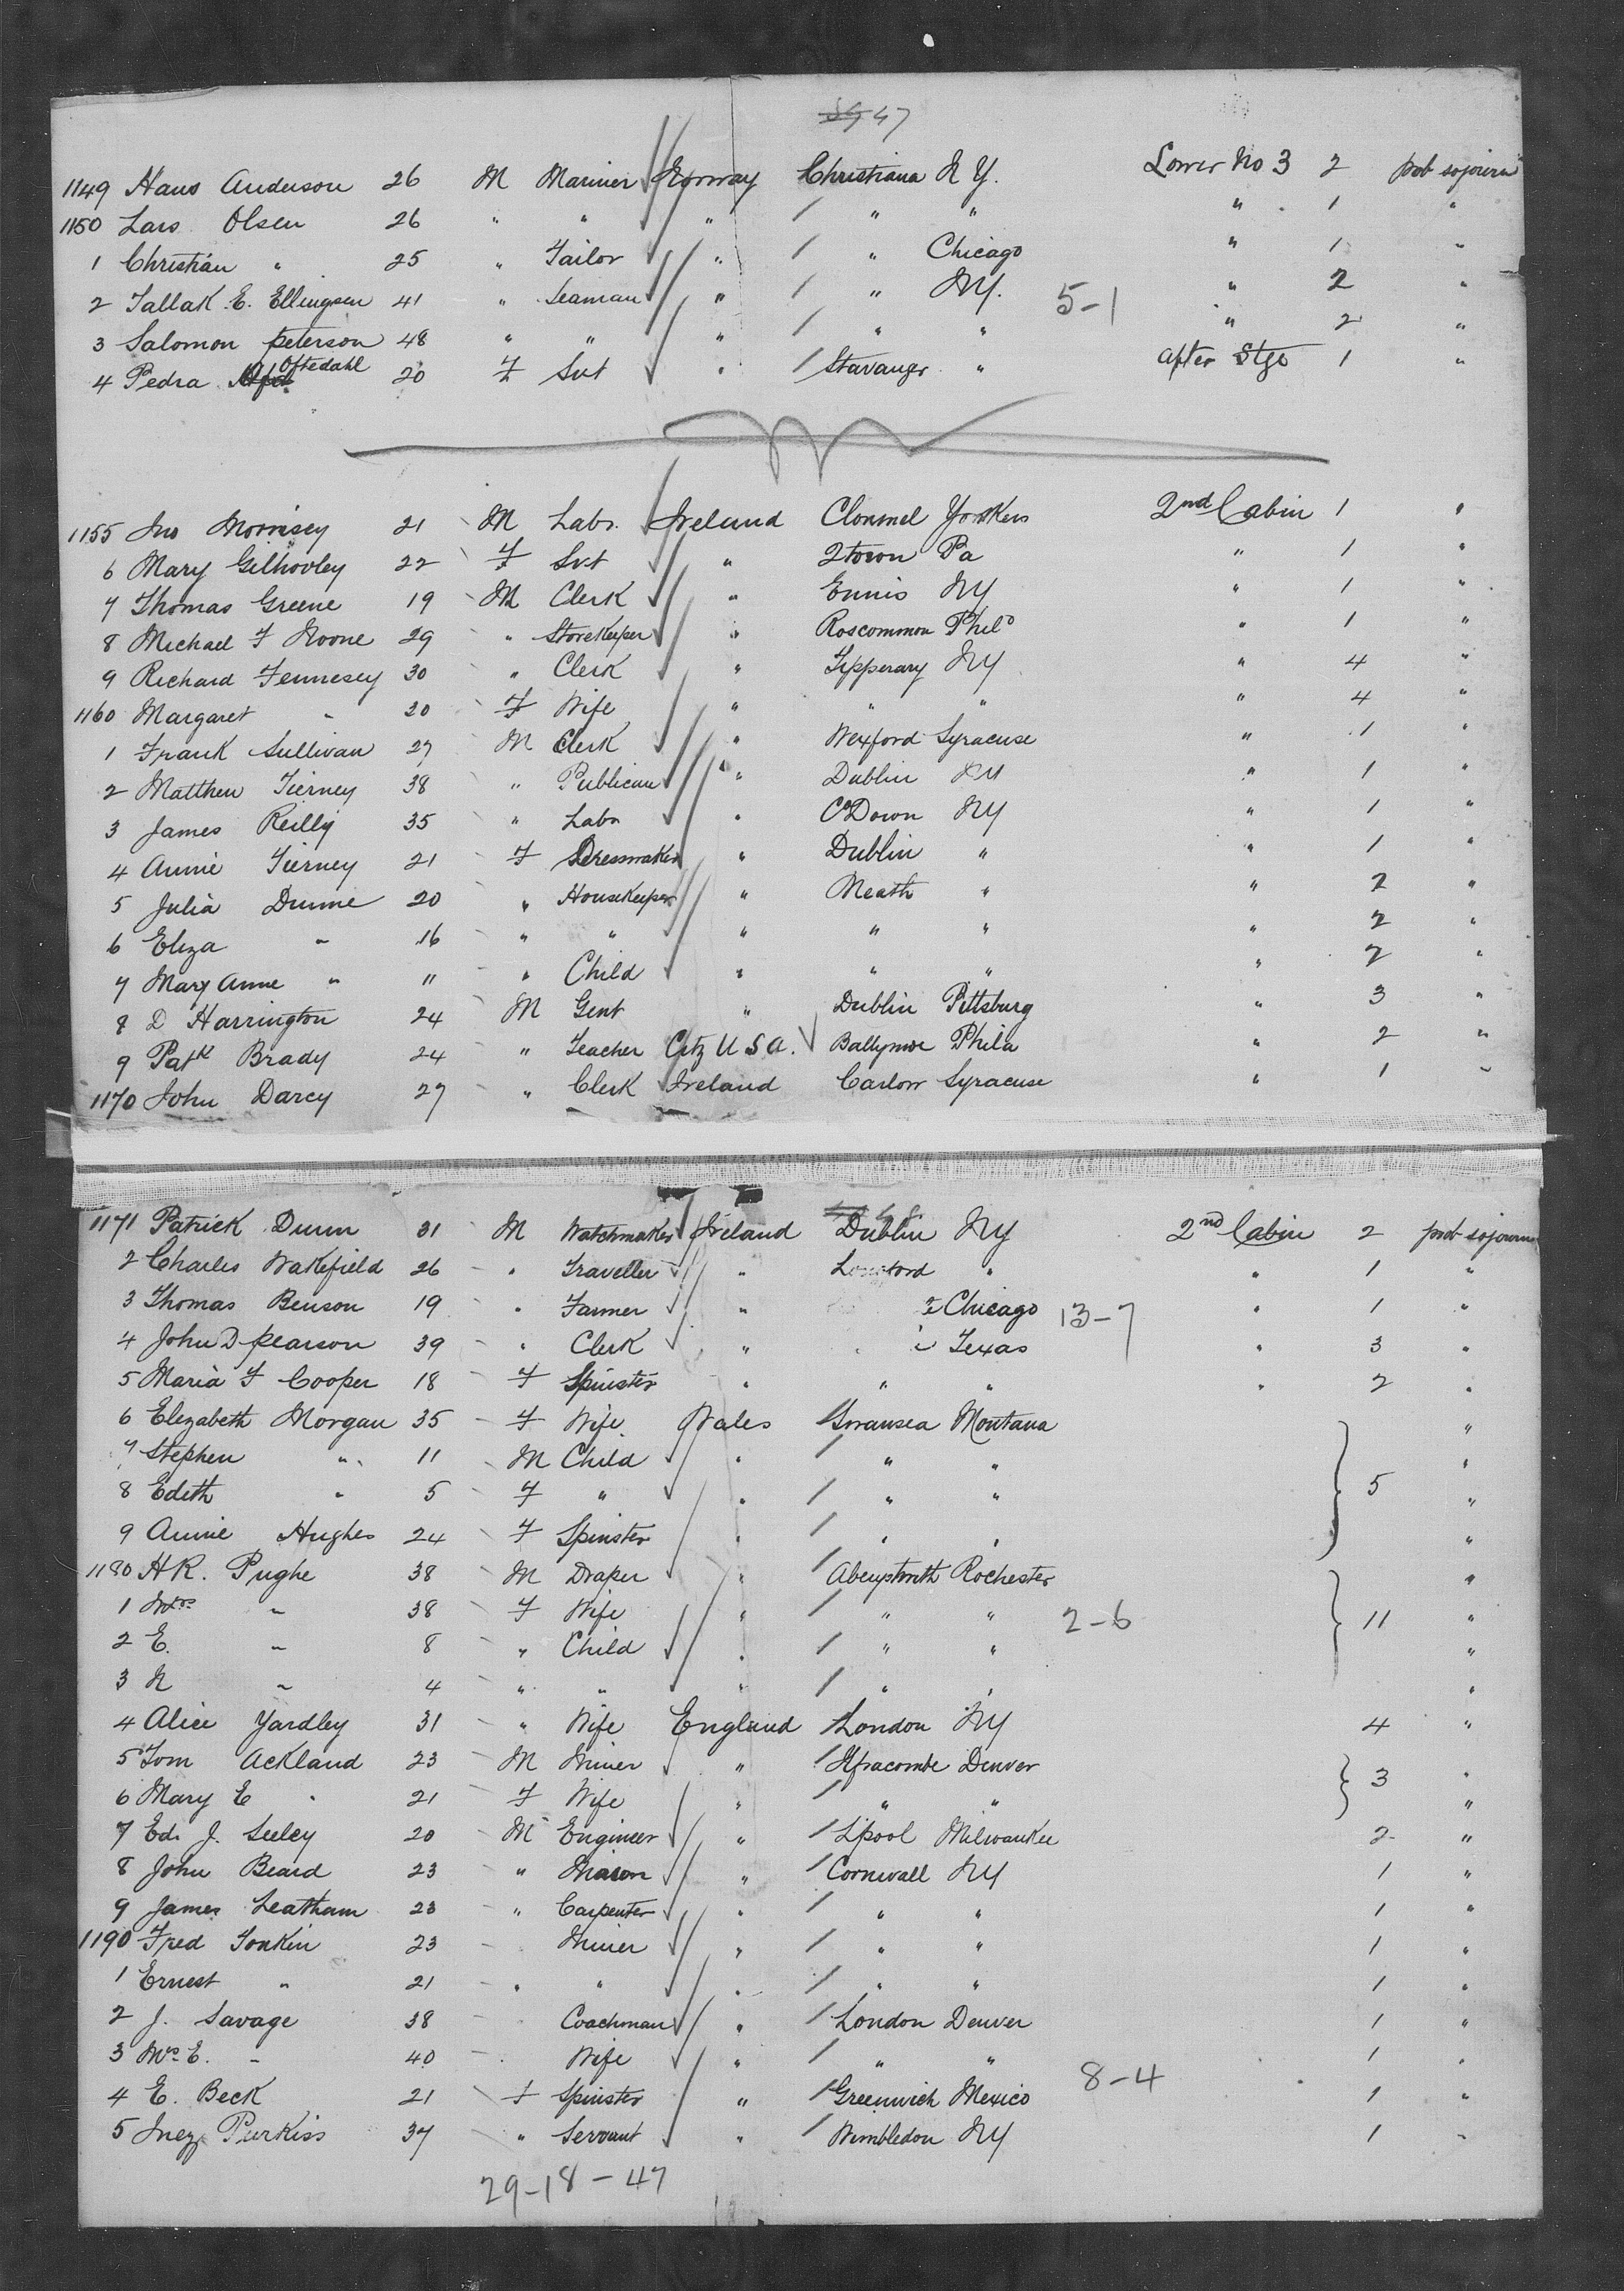 47
1149 Hans Anderson 26 M Mariner Norway Christiana N Y. Lower No 3 2 prob sojourn
1150 Lars Olsen 26 " " " / " " " 1 "
1 Christian " 25 " Tailor " / " Chicago " 1 "
2 Tallak E. Ellingsen 41 " Seaman " / " NY. 5-1 " 2 "
3 Salomon peterson 48 " " " / " " " 2 "
4 Pedra Oftedahl 20 F Svt " / Stavanger " after Stge 1 "
1155 Jno Morrisey 21 M Labr. Ireland Clonmel Yonkers 2nd Cabin 1 "
6 Mary Gilhooley 22 F Svt " Qtown Pa " 1 "
7 Thomas Greene 19 M Clerk " Ennis NY " 1 "
8 Michael F Noone 29 " Storekeeper " Roscommon Phila " 1 "
9 Richard Fennesey 30 " Clerk " Tipperary NY " 4 "
1160 Margaret " 20 F Wife " " " " 4 "
1 Frank Sullivan 27 M Clerk " Wexford Syracuse " 1 "
2 Matthew Tierney 38 " Publican " Dublin NY " 1 "
3 James Reilly 35 " Labr " Co Down NY " 1 "
4 Annie Tierney 21 F Dressmaker " Dublin " " 1 "
5 Julia Dunne 20 " Housekeeper " Meath " " 2 "
6 Eliza " 16 " " " " " " 2 "
7 Mary Anne " 11 " Child " " " " 2 "
8 D Harrington 24 M Gent " Dublin Pittsburg " 3 "
9 Patk Brady 24 " Teacher Citz U S A. Ballymoe Phila " 2 "
1170 John Darcy 27 " Clerk Ireland Carlow Syracuse " 1 "
1171 Patrick Dunn 31 M Watchmaker Ireland Dublin NY 2nd Cabin 2 prob sojourn
2 Charles Wakefield 26 " Traveller " Longford " " 1 "
3 Thomas Benson 19 " Farmer " Chicago 13-7 " 1 "
4 John D pearson 39 " Clerk " Texas " 3 "
5 Maria F Cooper 18 F Spinster " " " " 2 "
6 Elizabeth Morgan 35 F Wife Wales / Swansea Montana "
7 Stephen " 11 M Child " / " " "
8 Edith " 5 F " " / " " 5 "
9 Annie Hughes 24 F Spinster " / " " "
1180 H R. Pughe 38 M Draper " / Aberystwith Rochester "
1 Mrs " 38 F Wife " / " " 2-6 11 "
2 E. " 8 " Child " / " " "
3 N " 4 " " " / " " "
4 Alice Yardley 31 " Wife England / London NY 4 "
5 Tom Ackland 23 M Miner " / Ilfracombe Denver 3 "
6 Mary E " 21 F Wife " / " " "
7 Ed. J. Seeley 20 M Engineer " / Lpool Milwaukee 2 "
8 John Beard 23 " Mason " / Cornwall NY 1 "
9 James Leatham 23 " Carpenter " / " " 1 "
1190 Fred Tonkin 23 Miner " / " " 1 "
1 Ernest " 21 " " " / " " 1 "
2 J. Savage 38 Coachman " / London Denver 1 "
3 Mrs E. " 40 Wife " / " " 1 "
4 E. Beck 21 F Spinster " / Greenwich Mexico 8-4 1 "
5 Inez Purkiss 37 " Servant " / Wimbledon NY 1 "
29-18-47